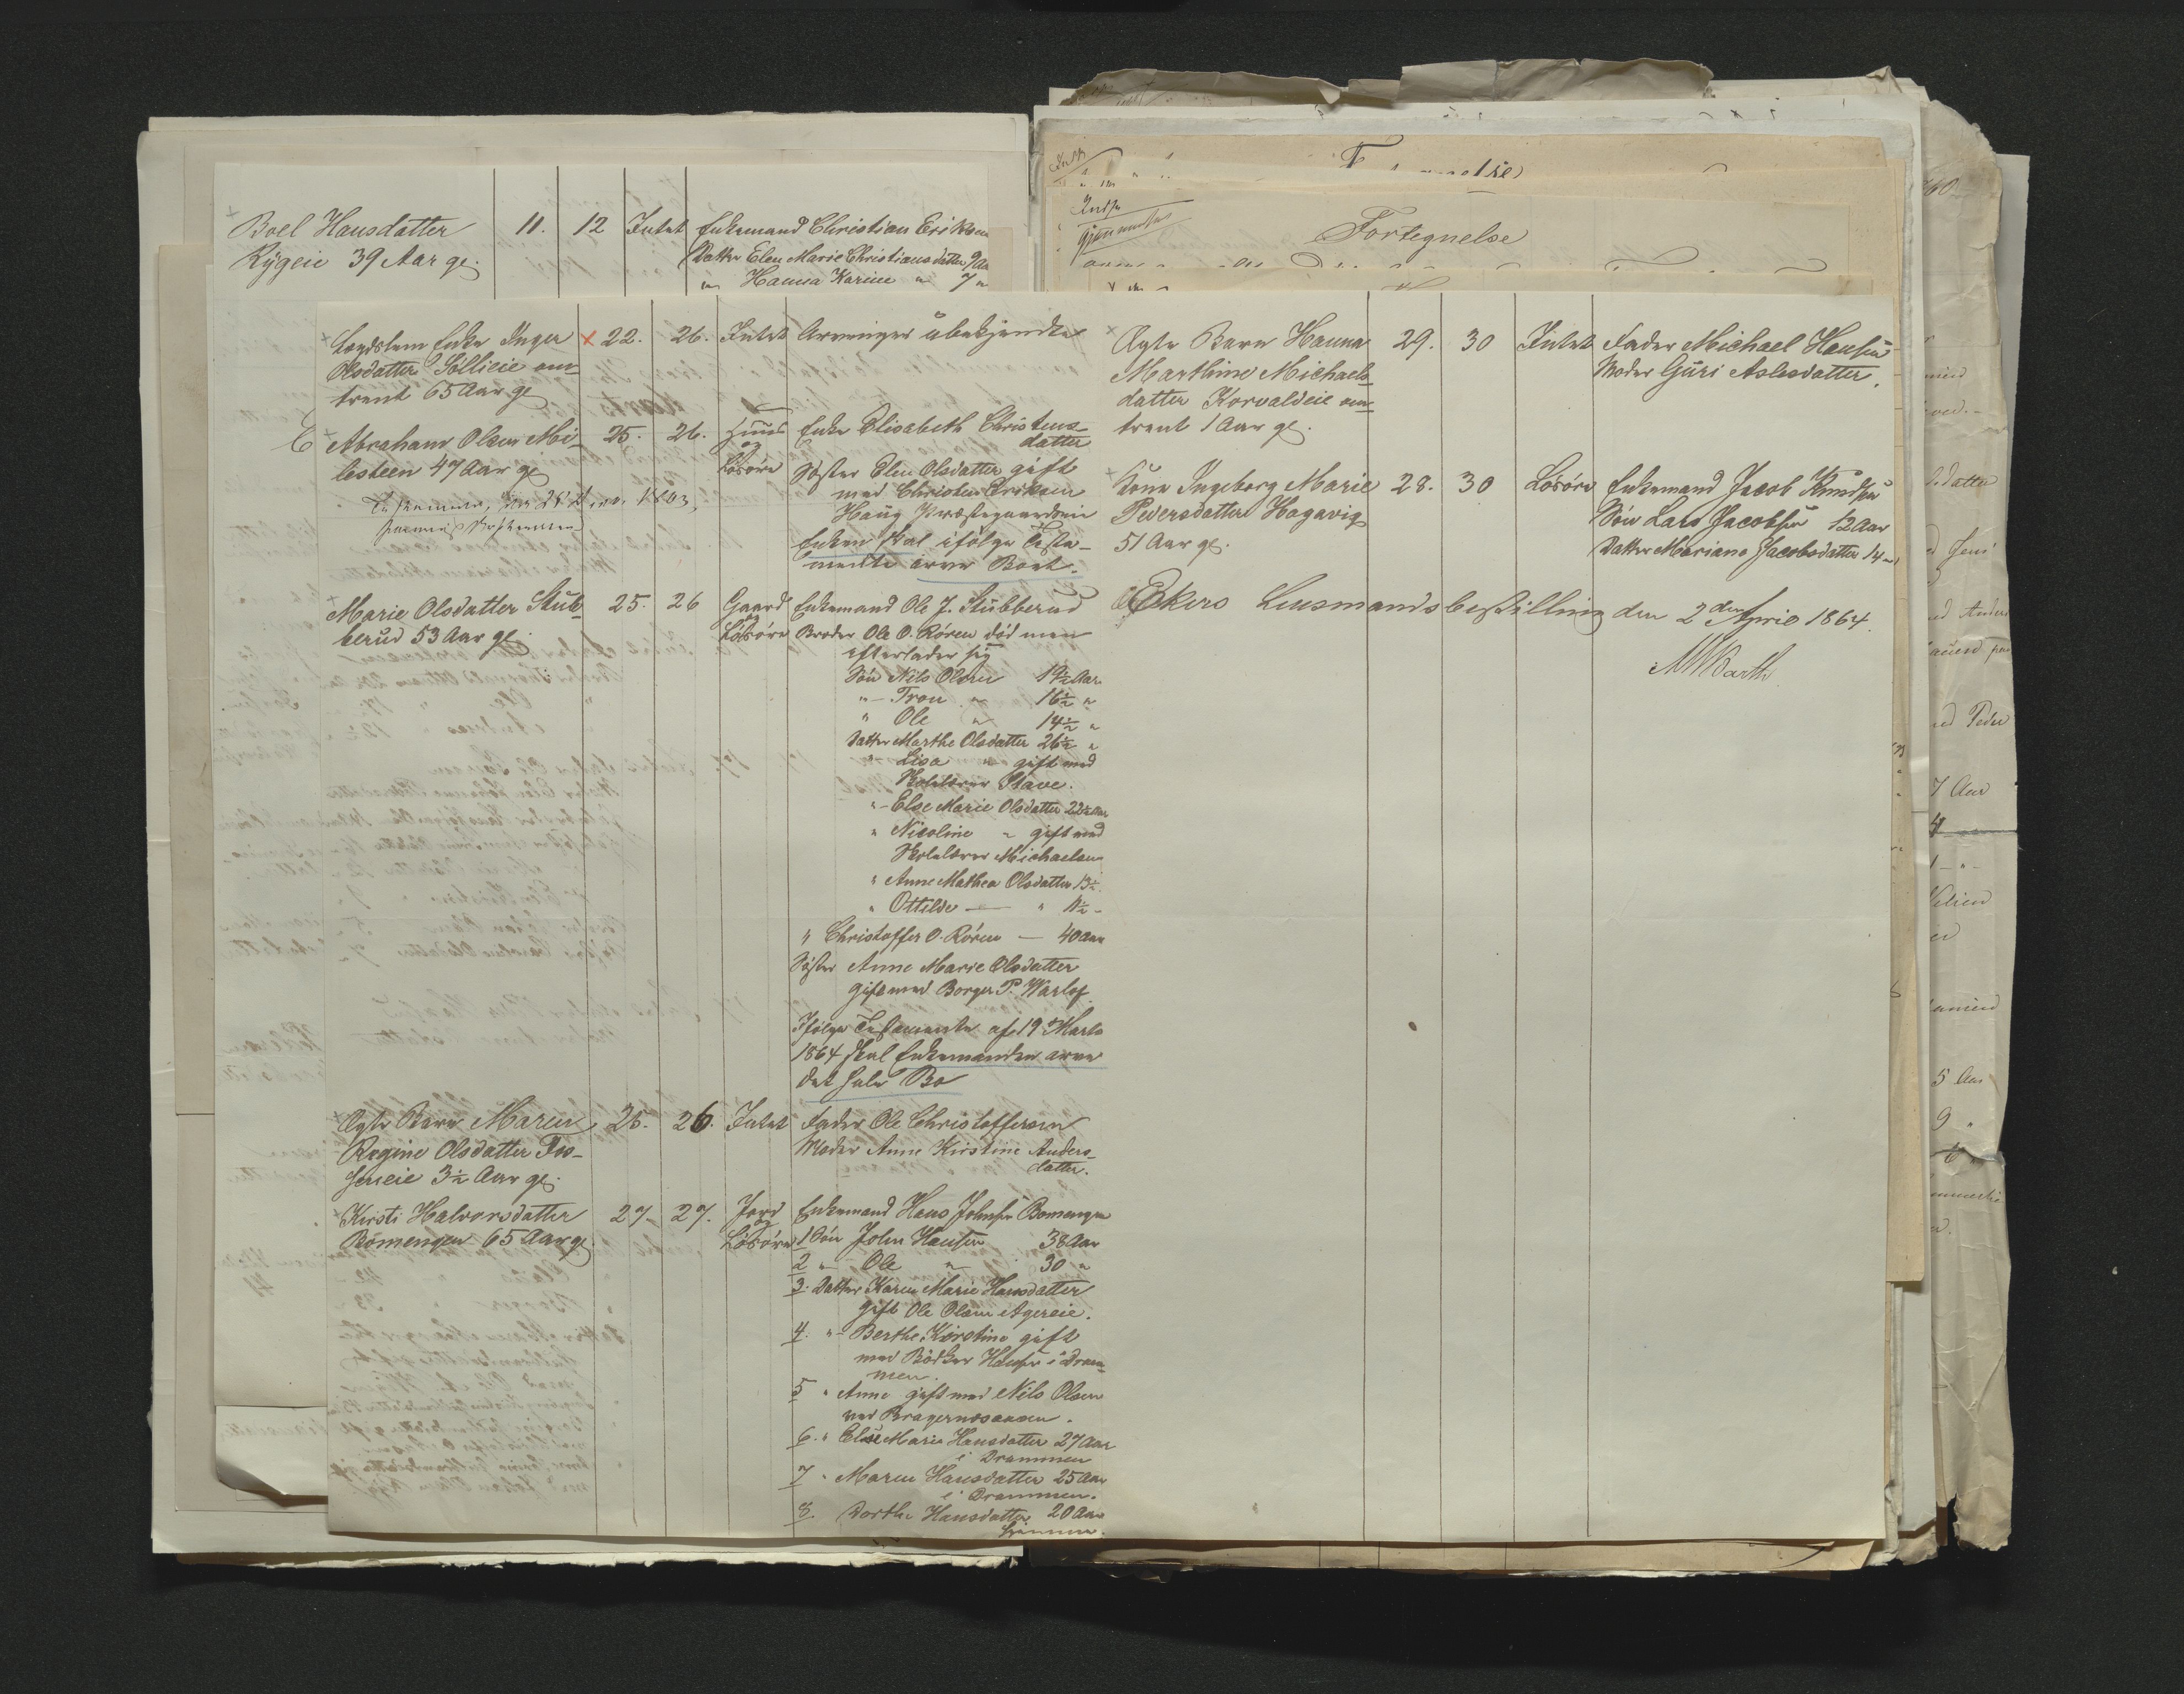 Boel Hansdatter 11. 12 Intet Enkemand Christian Eriksen
Rygeie 39 Aar gl. Datter Elen Marie Christiansdatter 9 Aa
" Hanna Karine " 7 "
Fortegnelse
Lægdslem Enke Inger × 22. 26. Intet Arvinger übekjendte
Olsdatter Sollieie om-
trent 65 Aar gl
Abraham Olsen Mi- 25. 26. Huus Enke Elisabeth Christens-
lesteen 47 Aar gl og datter
Løsøre Søster Elen Olsdatter gift
med Christen Eriksen
Haug Præstegaardseie
Enken skal ifølge Testa-
mente arve Boet.
Marie Olsdatter Stub- 25. 26 Gaard Enkemand Ole J. Stubberud
berud 53 Aar gl. og
Løsøre Broder Ole O. Røren död men
efterlader sig
Søn Nils Olsen 19½ Aar
" - Tron " 16½ "
" Ole " 14½ "
Datter Marthe Olsdatter 26½ "
" - Lisa " gift med
Skolelærer Stave.
" - Else Marie Olsdatter 22½ Aar
" Nicoline " gift med
Skolelærer Michaelsen
" Anne Mathea Olsdatter 13½
" Ottilde — " 11½ -
" Christoffer O. Røren — 40 Aar
Søster Anne Marie Olsdatter
gift med Borger P. Warlof
Ifølge Testamente af 19 Marts
1864 skal Enkemanden arve
det hele Bo
Ægte Barn Maren 25. 26. Intet Fader Ole Christoffersen
Regine Olsdatter Moder Anne Kirstine Anders-
3½ Aar gl. datter.
Kirsti Halvorsdatter 27. 27. Jord Enkemand Hans Johnsen Bomengen
Bömengen 65 Aar gl og
Løsøre 1 Søn John Hansen 38 Aar
2 " - Ole " 30 "
3. Datter Karen Marie Hansdatter
gift Ole Olsen Agereie.
4. " - Berthe Kirstine gift
med Bödker Hansen i Dram-
men.
5 " Anne gift med Nils Olsen
ved Bragernesaasen.
6. " Else Marie Hansdatter 27 Aar
i Drammen
7 " Maren Hansdatter 25 Aar
i Drammen.
8. Dorthe Hansdatter 20 Aar
hjemme.
Ægte Barn Hanna 29. 30 Intet Fader Michael Hansen
Marthine Michaels- Moder Güri Aslesdatter.
datter Korvaldeie om-
trent 1 Aar gl.
Kone Ingeborg Marie 28. 30 Løsøre Enkemand Jacob Knudsen
Pedersdatter Hagavig Søn Lars Jacobsen 12 Aar
51 Aar gl. Datter Mariane Jacobsdatter 14 "
Ekers Lensmandsbestilling den 2den April 1864.